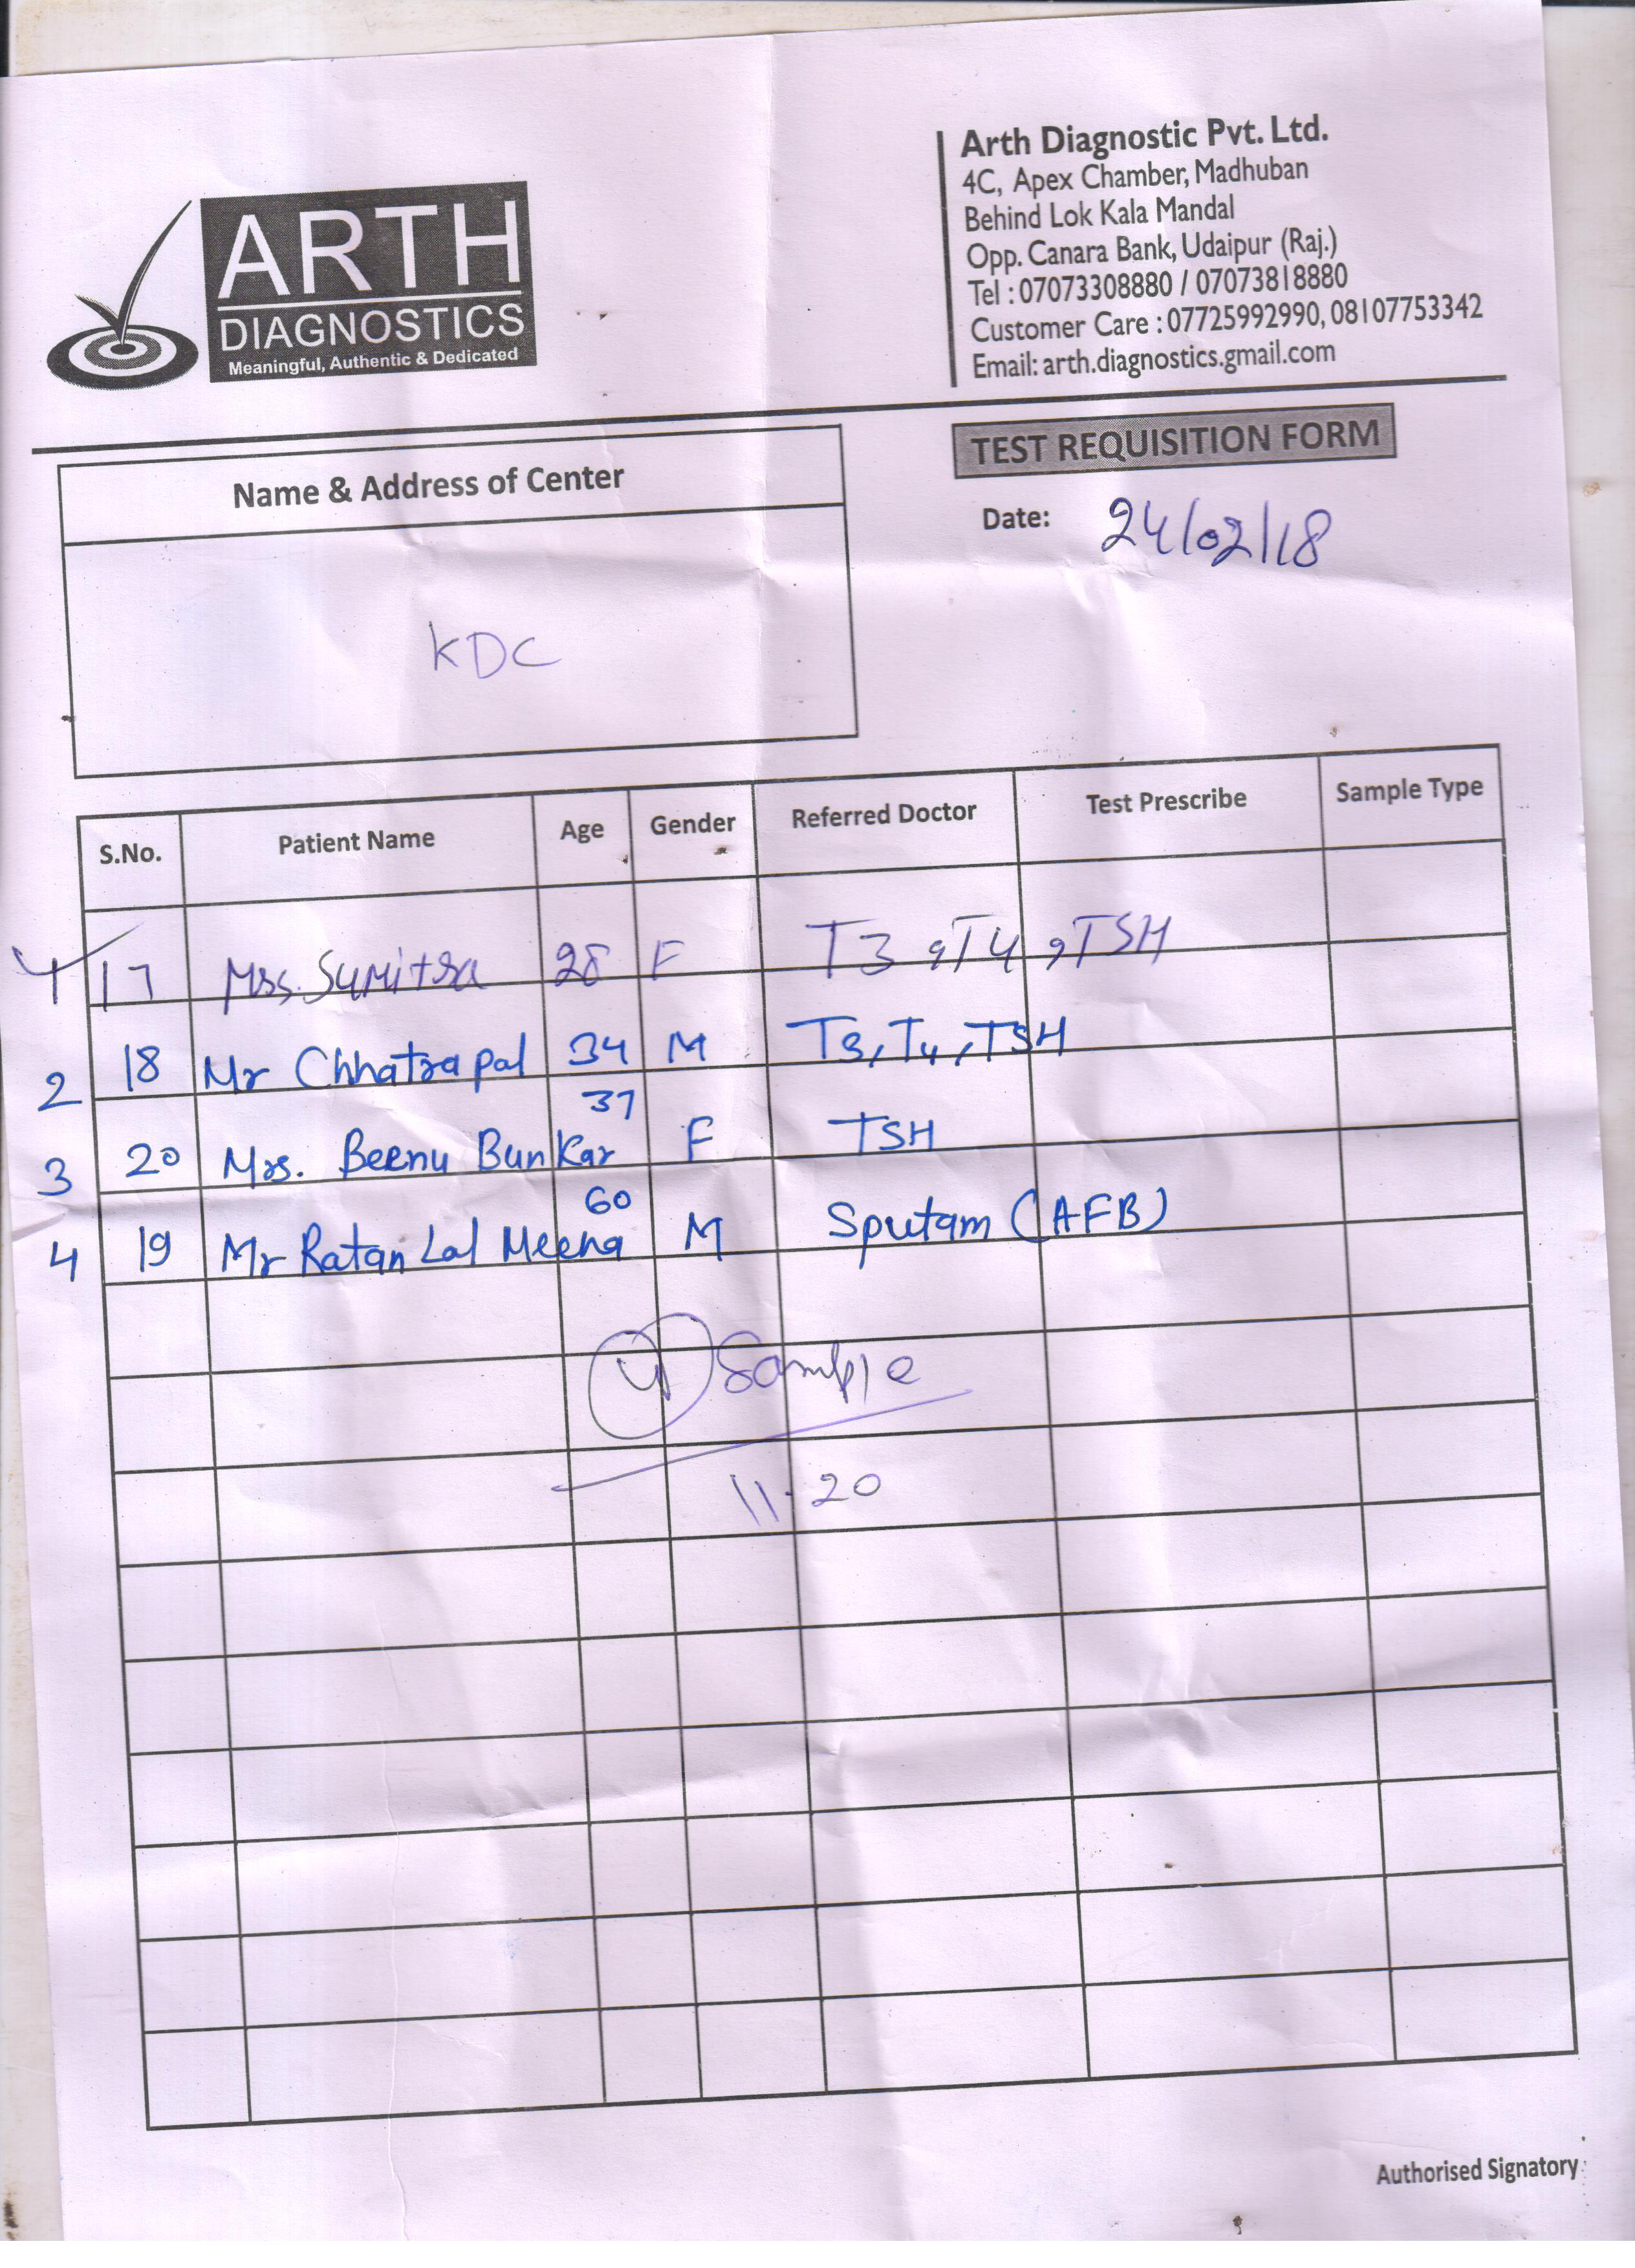 ARTH
DIAGNOSTICS
Meaningful, Authentic & Dedicated
Arth Diagnostic Pvt. Ltd.
4C, Apex Chamber, Madhuban
Behind Lok Kala Mandal
Opp. Canara Bank, Udaipur (Raj.)
Tel : 07073308880 / 07073818880
Customer Care : 07725992990, 08107753342
Email: arth.diagnostics.gmail.com
TEST REQUISITION FORM
Name & Address of Center
Date: 24/02/18
KDC
S.No. Patient Name Age Gender Referred Doctor Test Prescribe Sample Type
17 Mrs. Sumitra 28 F T3, T4, TSH
2 18 Mr Chhatrapal 34 M T3, T4, TSH
3 20 Mrs. Beenu Bunkar 37 F TSH
4 19 Mr Ratan Lal Meena 60 M Sputam (AFB)
4 Sample
11-20
Authorised Signatory